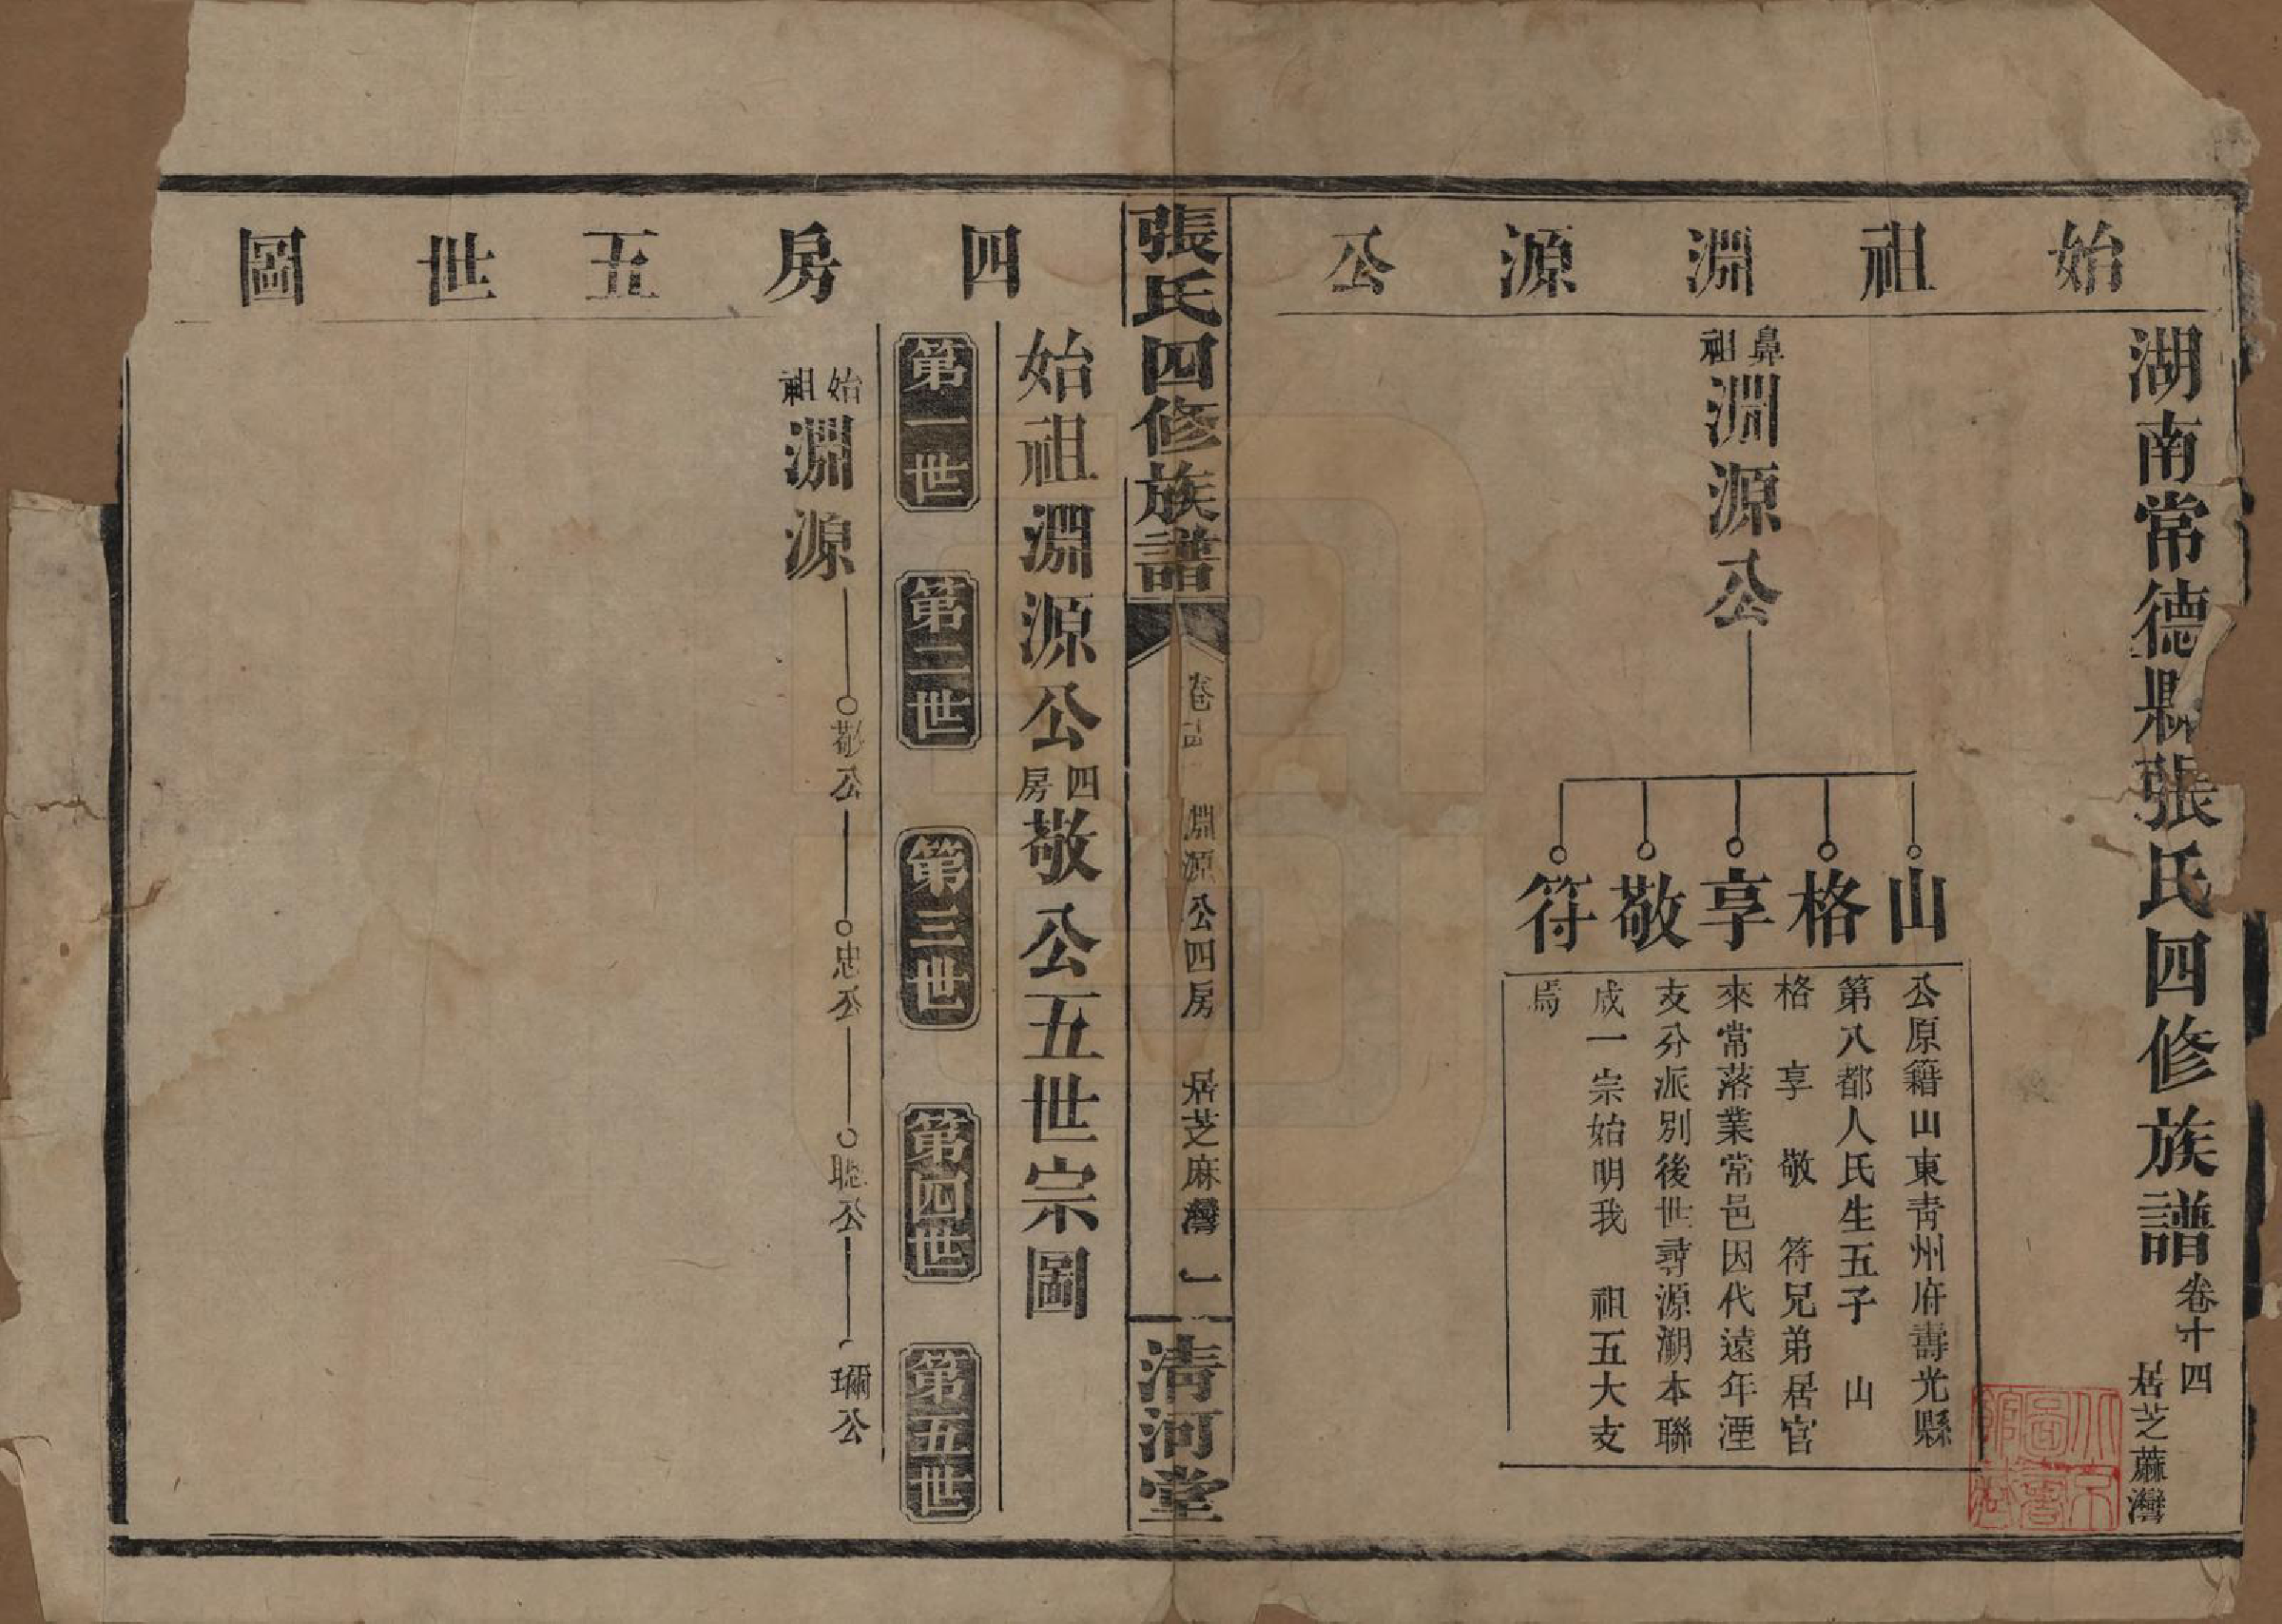 湖南常德縣張氏四修族譜 卷十四 居芝蔴灣
始祖淵源公
鼻祖淵源公
山
格
享
敬
符
公原籍山東靑州府壽光縣
第八都人氏生五子 山
格 享 敬 符兄弟居官
來常落業常邑因代遠年湮
支分派別後世尋源溯本聯
成一宗始明我 祖五大支
焉
張氏四修族譜 卷十四 淵源公四房 居芝麻灣 一 淸河堂
四房五世圖
始祖淵源公四房敬公五世宗圖
第一世 第二世 第三世 第四世 第五世
始祖淵源 敬公 忠公 聰公 璊公
北京圖書館藏